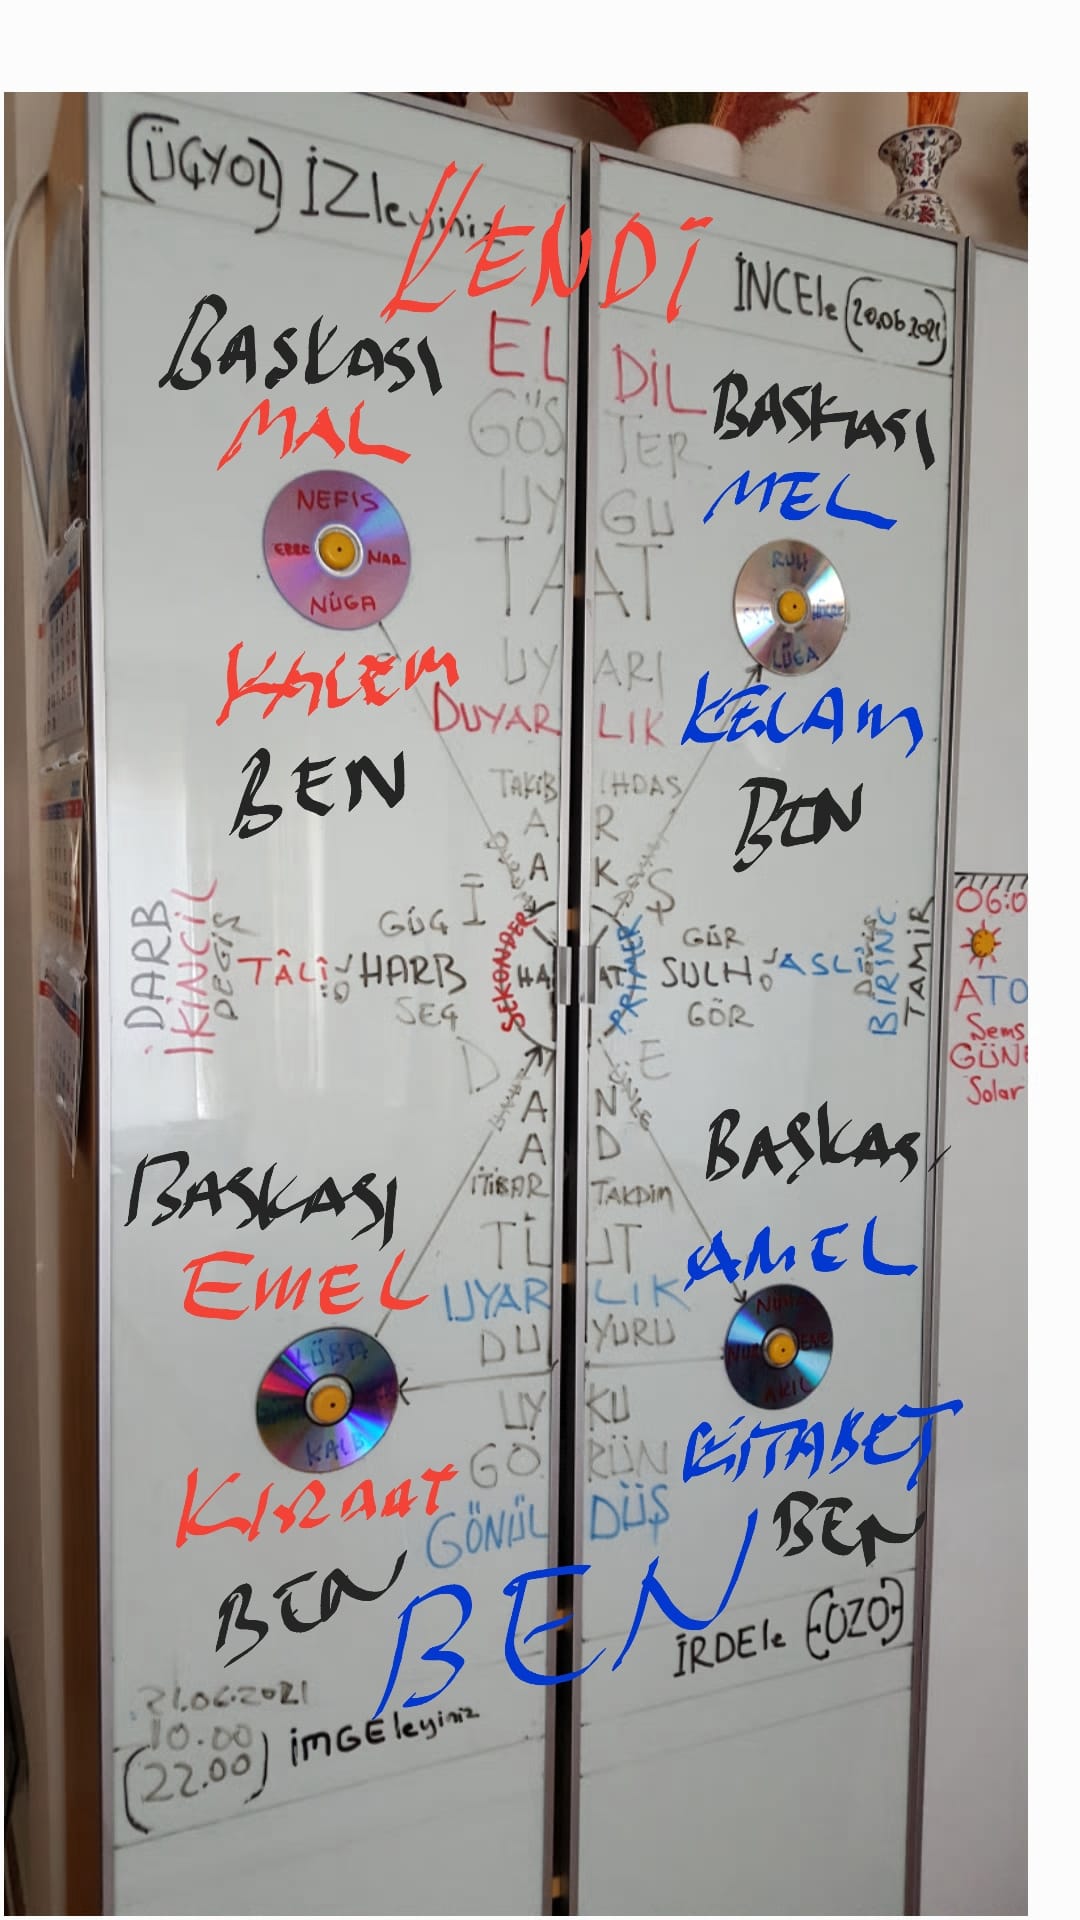 (ÜÇYOL) İZleyiniz
KENDİ
İNCEle (20.06.2021)
BAŞKASI
EL DİL
BAŞKASI
MAL
GÖS TER
MEL
UY GU
NEFİS
NAR
NÜGA
TA AT
RUH
LÜGA
UY ARI
KALEM
DUYAR LIK
KELAM
BEN
TAKİB İHDAS
BEN
A R
A K
İ Ş
GÜÇ
GÜR
DARB
İKİNCİL
DEĞİŞ
TÂLİ
HARB
SEKONDER
HA AT
PRİMER
SULH
ASLİ
BİRİNC
TAMİR
SEÇ
GÖR
06:0
ATO
Şems
GÜNE
Solar
D E
A N
A D
BAŞKASI
BAŞKASI
İTİBAR TAKDİM
EMEL
Tİ UT
AMEL
UYAR LIK
DU YURU
LÜBB
KALB
AKIL
UY KU
KIRAAT
GÖ RÜN
KİTABET
GÖNÜL DÜŞ
BEN
BEN
BEN
İRDEle (OZO)
21.06.2021
10.00
(22.00) İMGEleyiniz